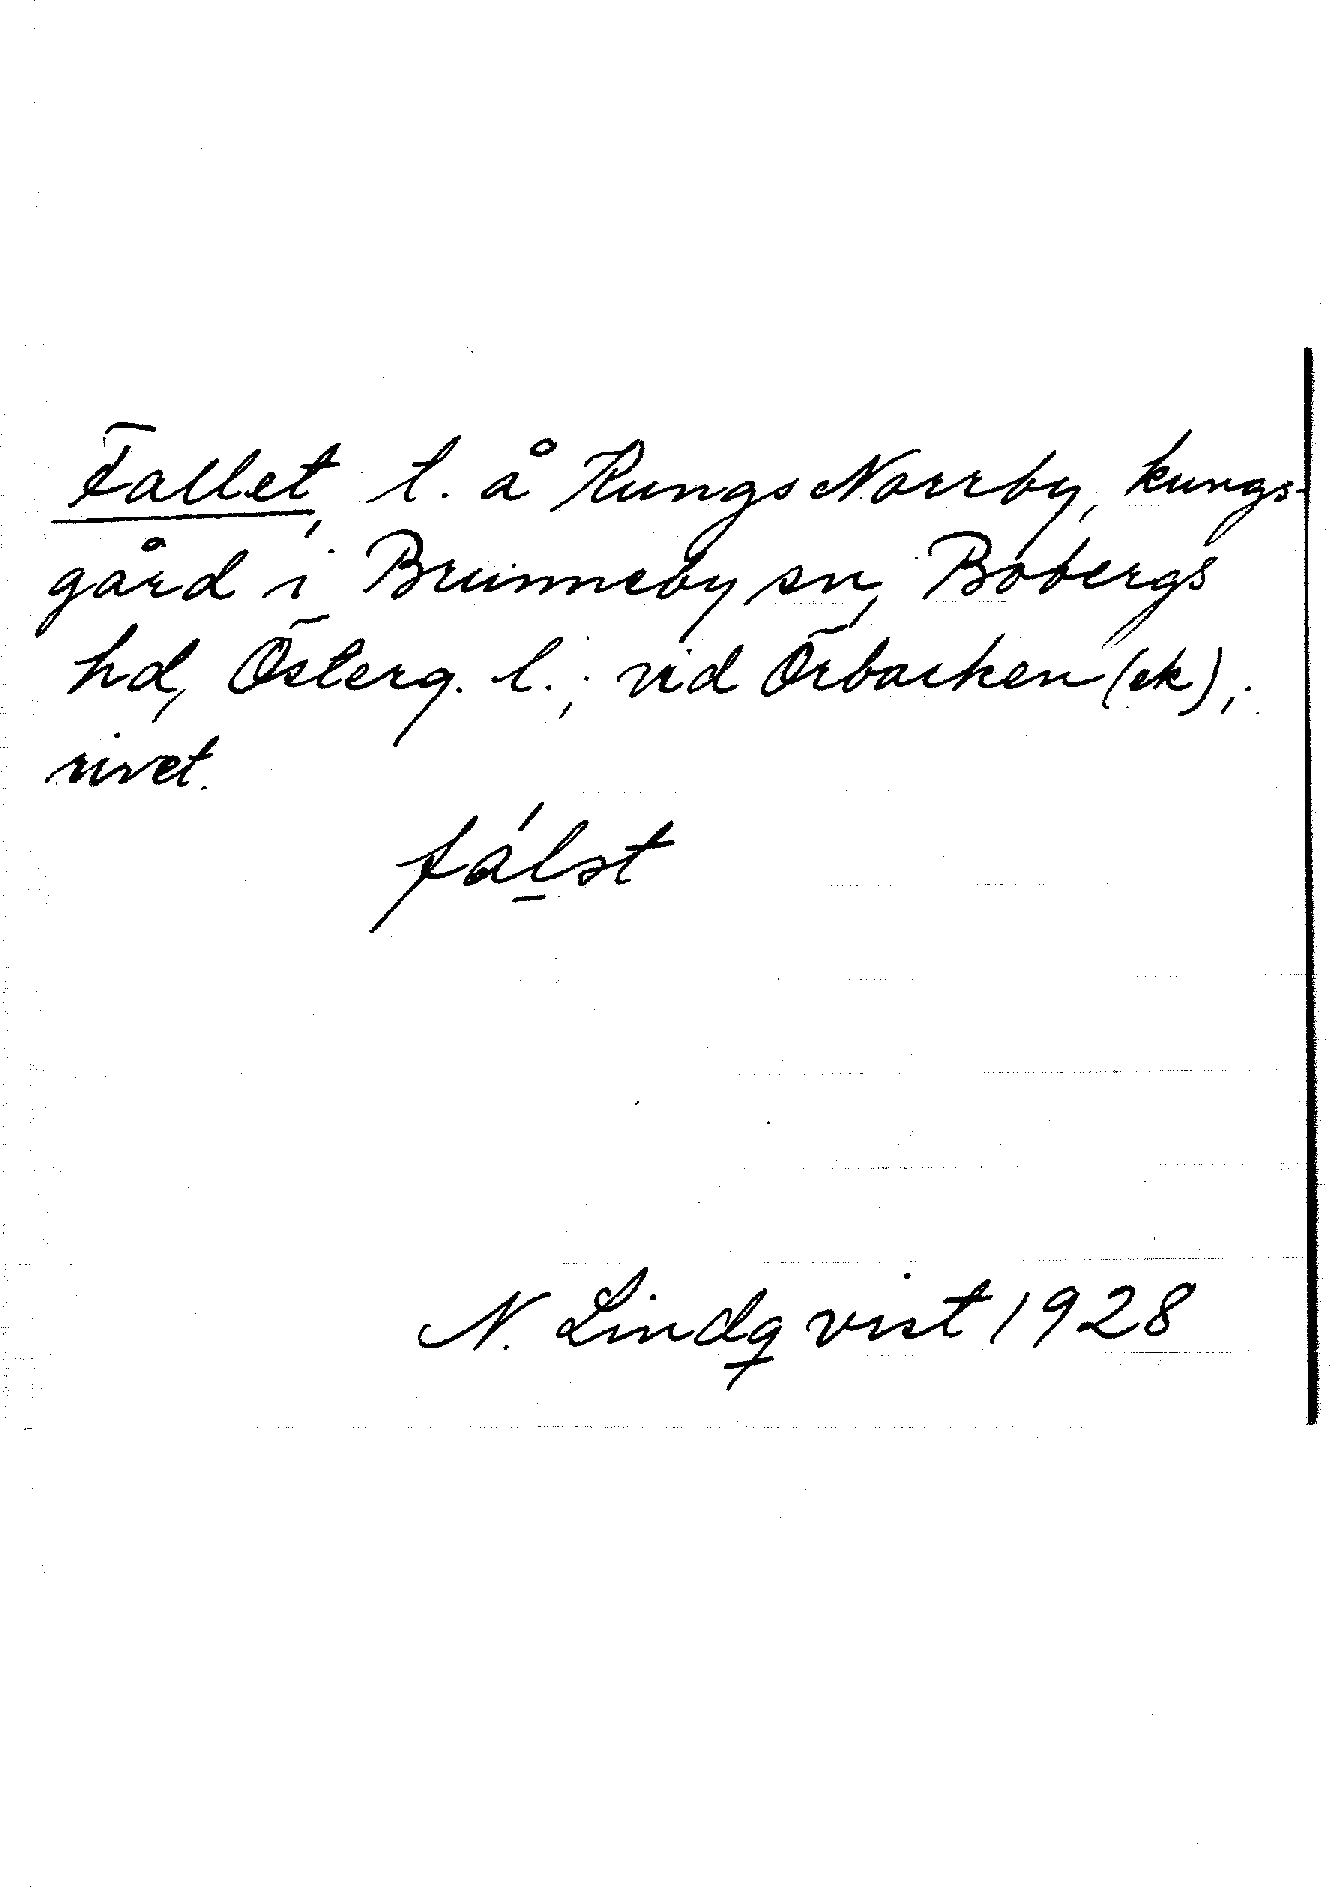 Fallet, t. å Kungs Norrby, kungs-
gård i Brunneby sn, Bobergs
hd, Österg. l.; vid Örbacken (ek),
rivet.
fálst
N. Lindqvist 1928